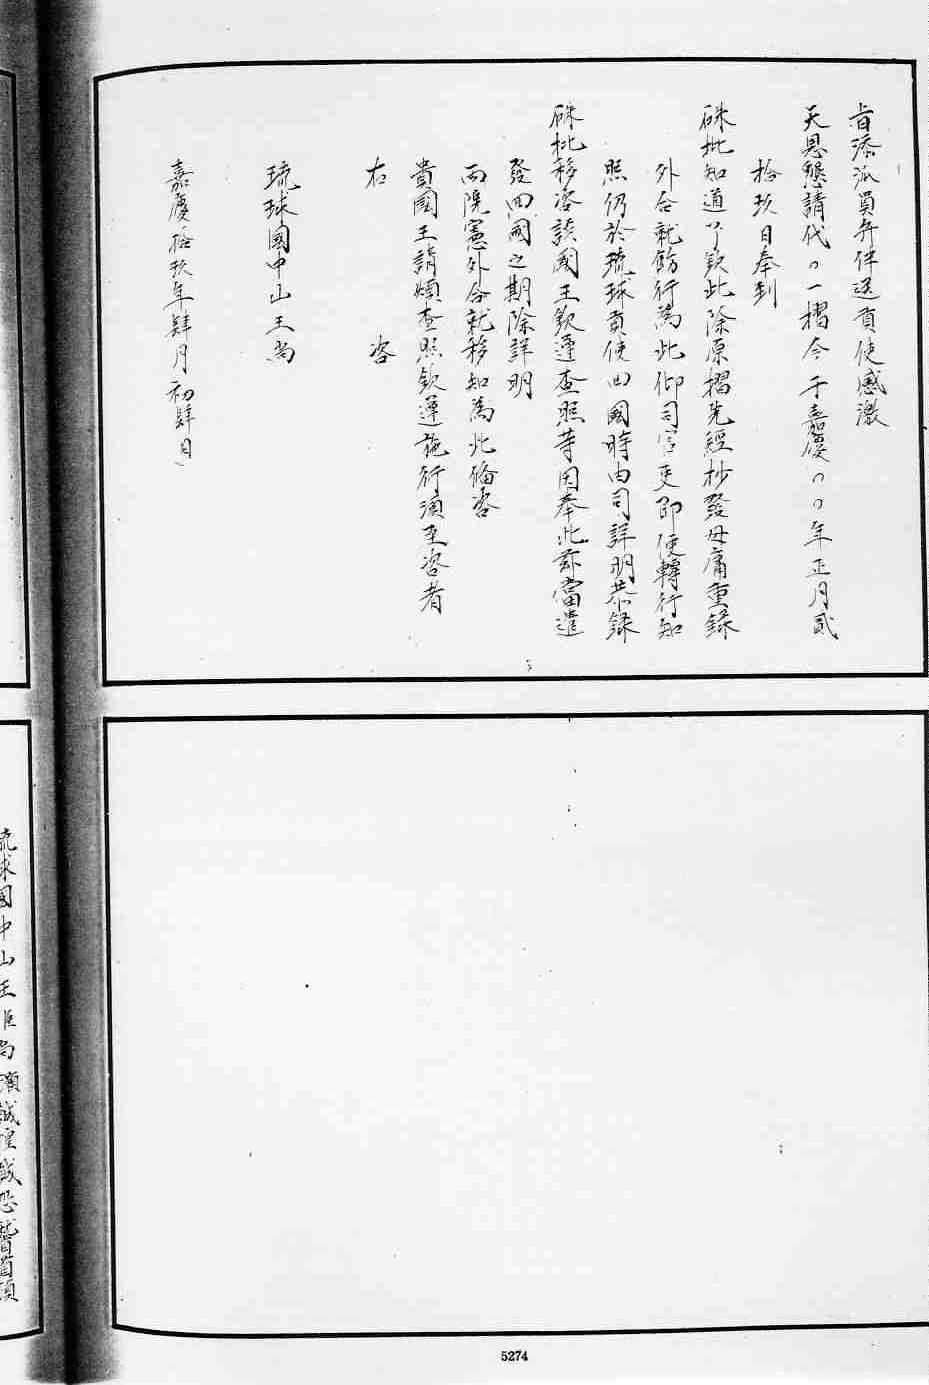 旨添派員弁伴送貢使感激
天恩懇請代〃一摺今于嘉慶〃〃年正月貳
拾玖日奉到
硃批知道了欽此除原摺先經抄發毋庸重錄
外合就飭行為此仰司官吏即便轉行知
照仍於琉球貢使回國時由司詳明恭錄
硃批移咨該國王欽遵查照等因奉此茲當遣
發回國之期除詳明
兩院憲外合就移知為此備咨
貴國王請煩查照欽遵施行須至咨者
右　咨
琉球國中山王尚
嘉慶拾玖年肆月初肆日
琉球國中山王臣尚灝誠惶誠恐稽首頓
5274